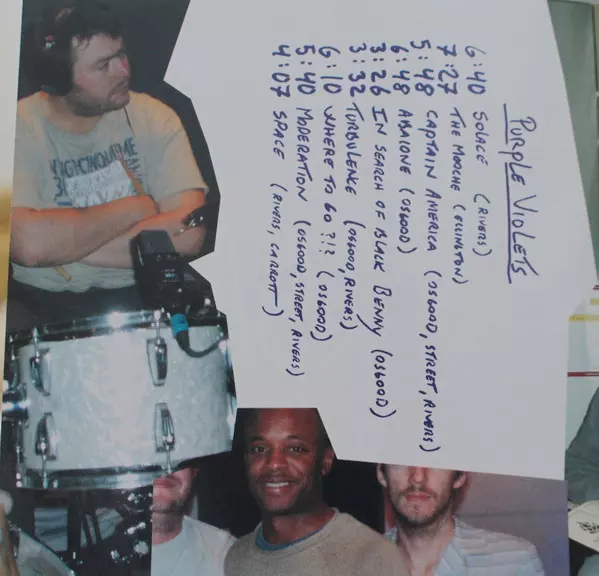 PURPLE VIOLETS
6:40 SOLACE (RIVERS)
7:27 THE MOOCHE (ELLINGTON)
5:48 CAPTAIN AMERICA (OSGOOD, STREET, RIVERS)
6:48 ABALONE (OSGOOD)
3:26 IN SEARCH OF BLACK BENNY (OSGOOD)
3:32 TURBULENCE (OSGOOD, RIVERS)
6:10 WHERE TO GO?!? (OSGOOD)
5:40 MODERATION (OSGOOD, STREET, RIVERS)
4:07 SPACE (RIVERS, CARROTT)